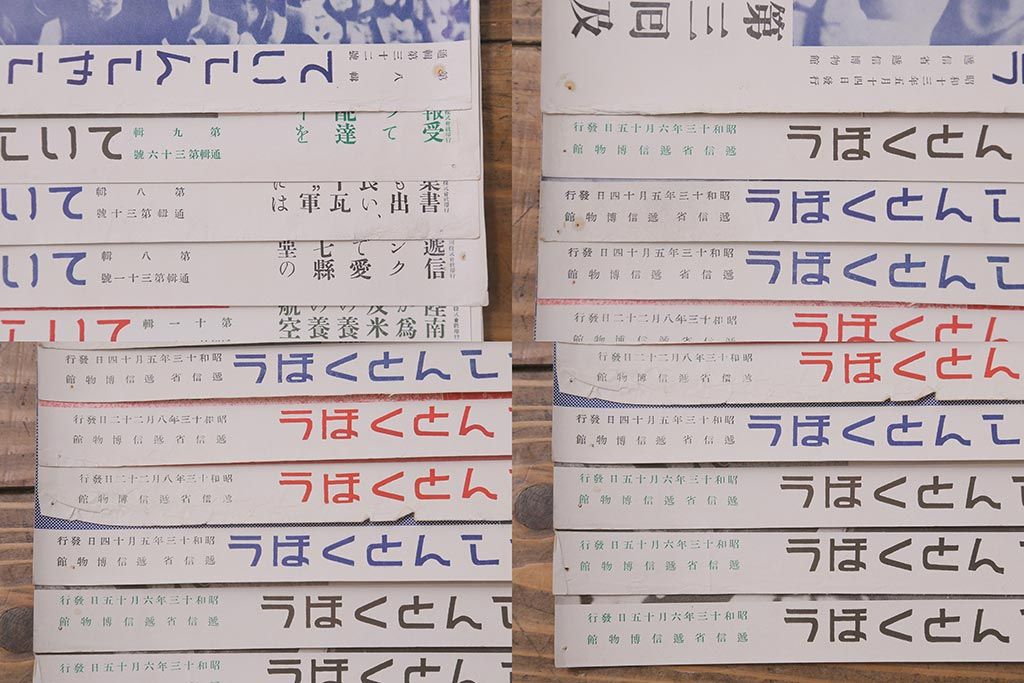 ていしんしやし
第八輯
通輯第三十二號
報受
配達
を
ていし
第九輯
通輯第三十六號
葉書
も出
良い、
ていし
第八輯
通輯第三十號
遞信
ンク
て愛
七縣
堂の
ていし
第八輯
通輯第三十一號
陸南
が爲
及米
の養
航空
ていし
第十一輯
第三回及
昭和十三年五月十四日發行
遞信省遞信博物館
んとくほう
昭和十三年六月十五日發行
遞信省遞信博物館
しんとくほう
昭和十三年五月十四日發行
遞信省遞信博物館
しんとくほう
昭和十三年五月十四日發行
遞信省遞信博物館
んとくほう
昭和十三年八月二十二日發行
しんとくほう
昭和十三年五月十四日發行
遞信省遞信博物館
んとくほう
昭和十三年八月二十二日發行
遞信省遞信博物館
んとくほう
昭和十三年八月二十二日發行
遞信省遞信博物館
しんとくほう
昭和十三年五月十四日發行
遞信省遞信博物館
しんとくほう
昭和十三年六月十五日發行
遞信省遞信博物館
んとくほう
昭和十三年六月十五日發行
遞信省遞信博物館
んとくほう
昭和十三年八月二十二日發行
遞信省遞信博物館
しんとくほう
昭和十三年五月十四日發行
遞信省遞信博物館
んとくほう
昭和十三年六月十五日發行
遞信省遞信博物館
んとくほう
昭和十三年六月十五日發行
遞信省遞信博物館
んとくほう
昭和十三年六月十五日發行
遞信省遞信博物館